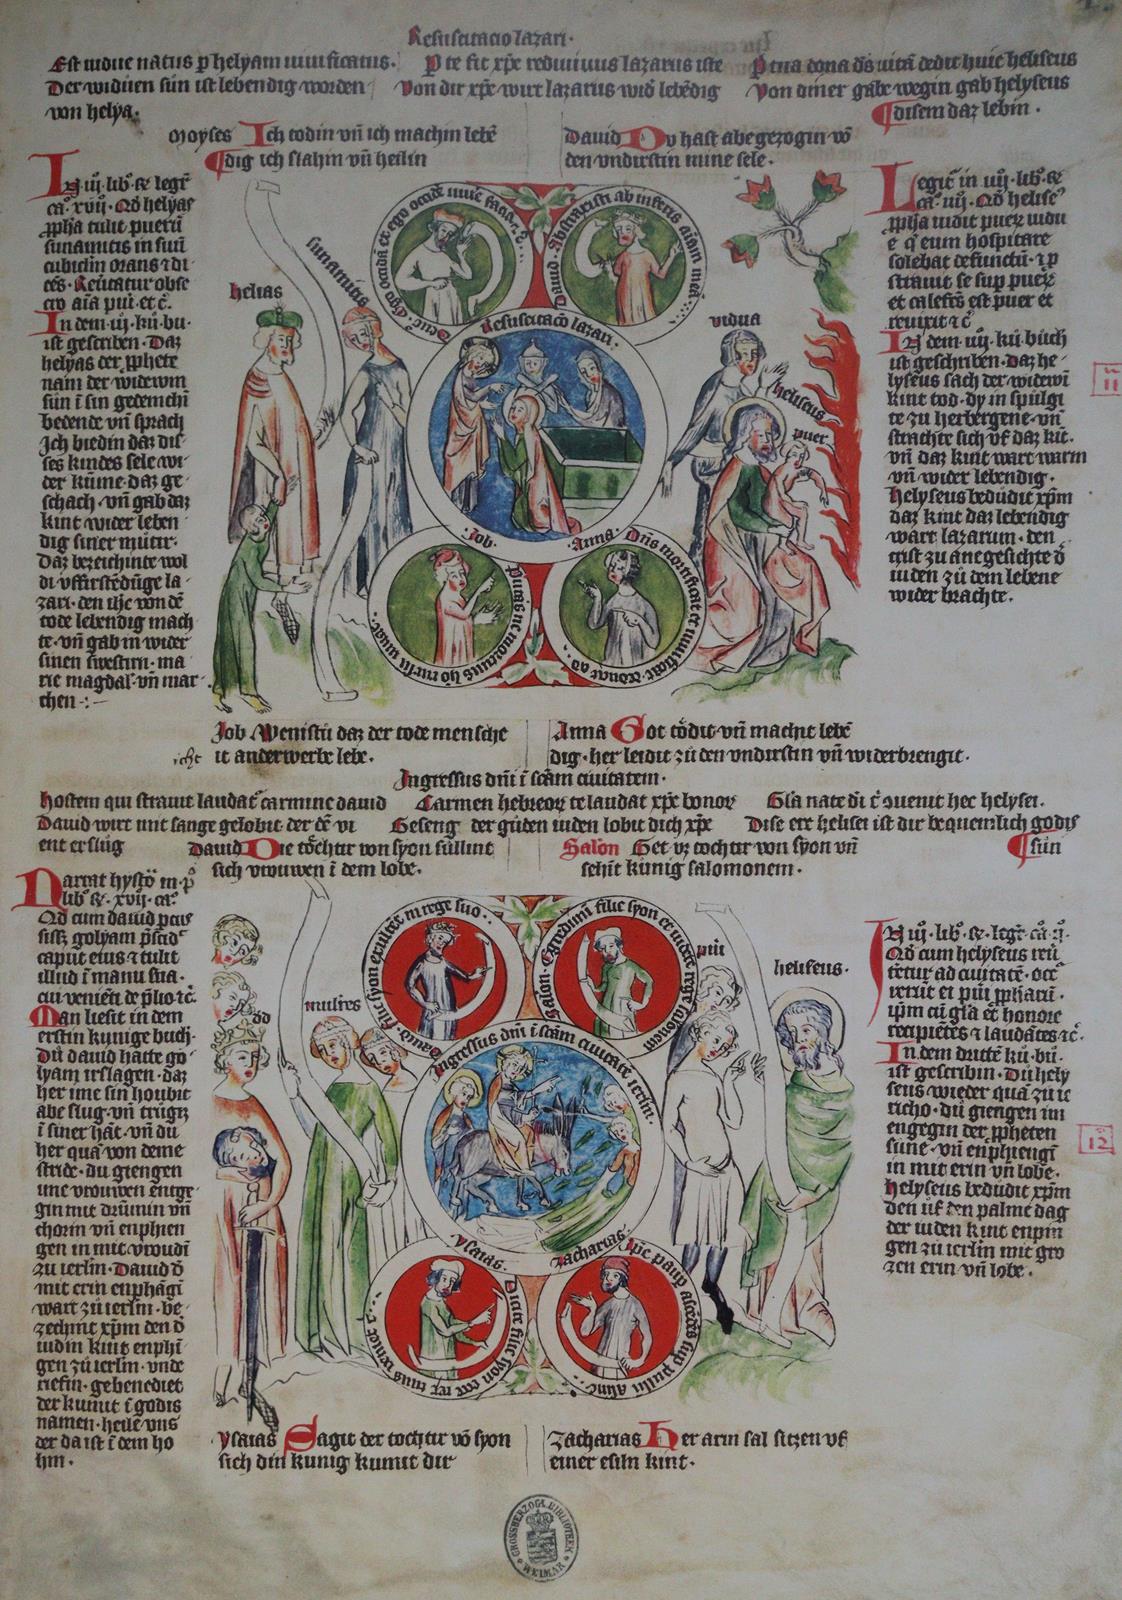 Resuscitacio lazari·
Est vidue natus p helyam viuificatus·
Der widuen sun ist lebendig worden
von helya·
P te fit xpe rediuiuus lazarus iste
Von dir xpe wirt lazarus wid lebedig
P tua dona ds vita dedit huic heliseus
Von diner gabe wegin gab helyseus
disem daz lebin·
Moyses Ich todin vn ich machin lebe
dig ich slahin vn heilin
Dauid Du hast abegezogin vo
den vndirstin mine sele·
In iij· lib· R· legit
ca· xvij· Qd helyas
ppha tulit pueru
sunamitis in suu
cubiclm orans & di
ces· Reuertatur obse
cro aia pui· et c·
In dem· iij· ku· bu·
ist gescriben· Daz
helyas der pphete
nam der widewin
sun i sin gedemchi
betende vn sprach
Ich biedin daz dis
ses kindes sele wi
der kume· daz ge
schach· vn gab daz
kint wider leben
dig siner mutir·
Daz bezeichinte wol
di vffirstedunge la
zari· den ihc von de
tode lebendig mach
te· vn gab in wider
sinen swestirn· ma
rie magdal· vn mar
chen·:–
helias
sunamitis
Dauid· Abstraxisti ab inferis aiam mea
Resuscitaco lazari·
vidua
heliseus
puer
Job·
Putas ne mortuus ho rursu viuat·
Anna· Dns mortificat et viuificat
Legit in iiij· lib· R·
ca· iiij· Qd helise
ppha vidit puer vidu
e q eum hospitare
solebat defunctu· & p
strauit se sup puer
et calefcs est puer et
reuixit & c
In dem· iiij· ku· buch
ist geschriben· daz he
lyseus sach der widewi
kint tod· dy in spulgi
te zu herbergene· vn
strachte sich vf daz kit·
vn daz kint wart warm
vn wider lebendig·
Helyseus bedudit xpm
daz kint daz lebendig
wart lazarum· den
crist zu anegesichte d
iuden zu dem lebene
wider brachte·
11
Job Wenistu daz der tode mensche
icht
it anderwerbe lebe·
Anna Got todit vn machit lebe
dig· her leidit zu den vndirstin vn widerbrengit·
Ingressus dni i scam ciuitatem·
Hostem qui strauit laudat carmine dauid
Dauid wirt mit sange gelobit· der de vi
ent erslug
Carmen hebreor te laudat xpe bonor
Geseng der guden iuden lobit dich xpe
Gla nate di t quenit hec helysei·
Dise ere helisei ist dir bequemlich godis
sun
Dauid Die tochtir von syon sullint
sich vrouwen i dem lobe·
Salon Get vz tochtir von syon vn
sehint kunig salomonem·
Narrat hysto in· p
lib· R· xvij· ca·
Qd cum dauid pcus
sisz golyam pscid
caput eius & tulit
illud i manu sua·
cui venieti de plio &c·
Man liesit in dem
erstin kunige buch·
Du dauid hatte go
lyam irslagen· daz
her ime sin houbit
abe slug· vn trugz
i siner hat· vn du
her qua von deme
stride· du giengen
ime vrouwen entge
gin mit drumin vn
chorin vn enphien
gen in mit vroudi
zu ierlm· Dauid d
mit erin enphagi
wart zu ierlm· be
zechint xpm den d
iudin kint enphi
gen zu ierlm· vnde
riefin· gebenediet
der kumit i godis
namen· heile vns
der da ist i dem ho
hin·
dd
mulires
Dauid· filie syon exultet in rege suo··
Salon· Egredimi filie syon et videte rege salonem
Ingressus dni i scam ciuitate ierlm·
pui
heliseus·
ysaias·
Dicite filie syon ecce rex tuus veniet
zacharias· Ipe paup ascedes sup pullu asine
In iiij· lib· R· legit· ca· ij·
Qd cum helyseus reu
tetur ad ciuitate· occ
rerut ei pui ppharu·
ipm cu gla et honore
recipietes & laudates &c·
In dem dritte ku· bu·
ist gescribin· Du hely
seus wieder qua zu ie
richo· du giengen im
engegin der ppheten
sune· vn enphiengi
in mit erin vn lobe·
Helyseus bedudit xpm
den vf den palme dag
der iuden kint enpin
gen zu ierlm mit gro
zen erin vn lobe·
12
ysaias Sagit der tochtir vo syon
sich din kunig kumit dir
Zacharias Her arm sal sitzen vf
einer esiln kint·
GROSSHERZOGL. BIBLIOTHEK
WEIMAR